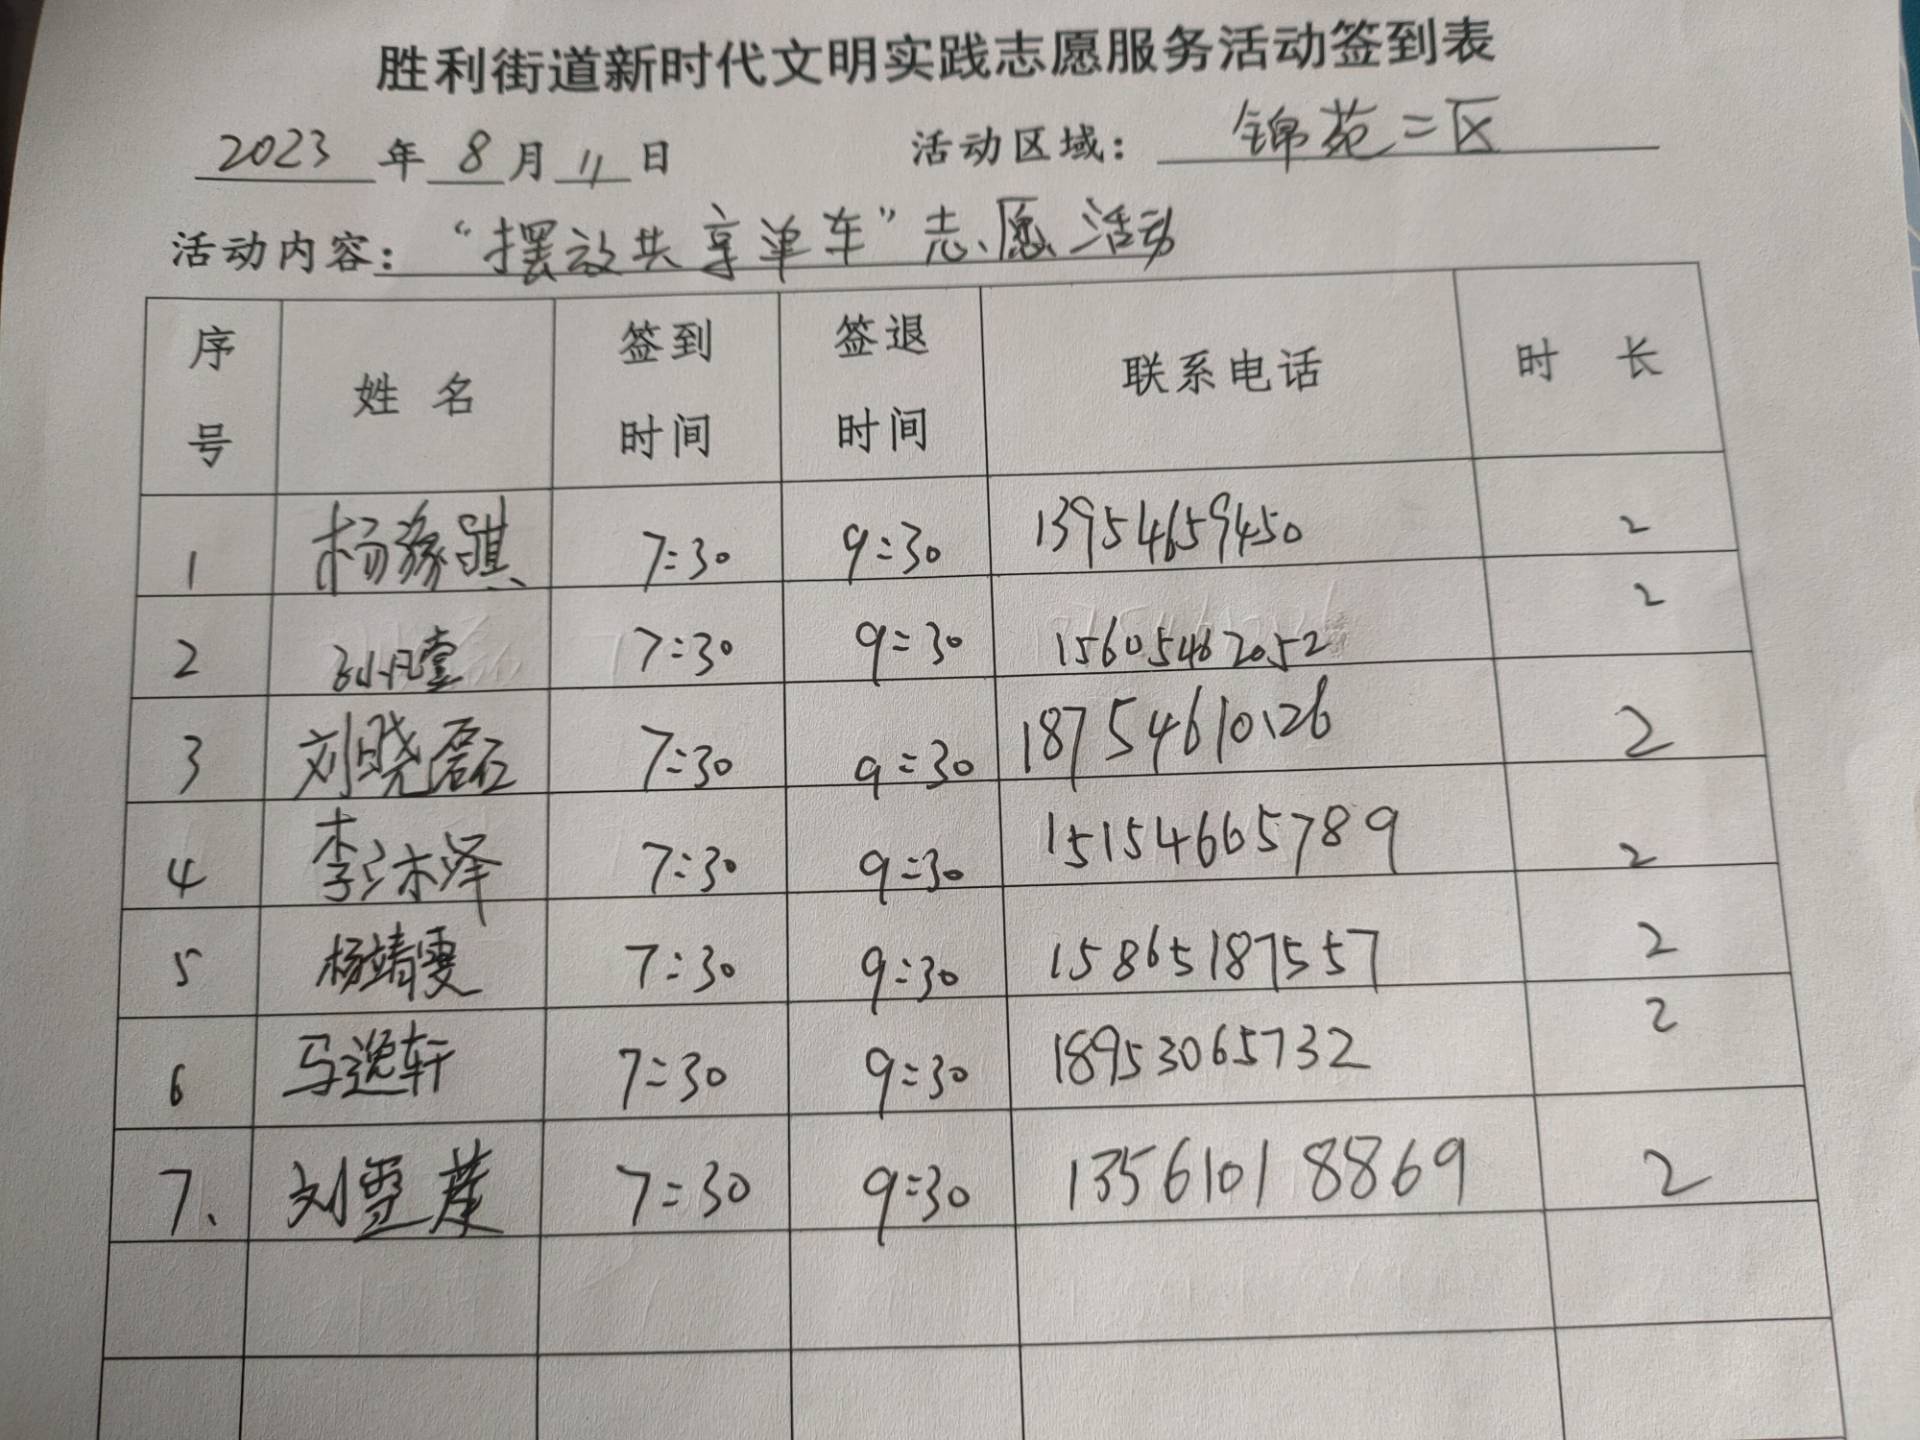 胜利街道新时代文明实践志愿服务活动签到表
2023 年 8 月 11 日 活动区域： 锦苑二区
活动内容： “摆放共享单车”志愿活动
序号 姓名 签到时间 签退时间 联系电话 时 长
1 杨豫骐 7:30 9:30 13954659450 2
2 7:30 9:30 15605462052 2
3 刘晓磊 7:30 9:30 18754610126 2
4 李沐泽 7:30 9:30 15154665789 2
5 杨靖雯 7:30 9:30 15865187557 2
6 马逸轩 7:30 9:30 18953065732 2
7、 刘雪 7:30 9:30 13561018869 2